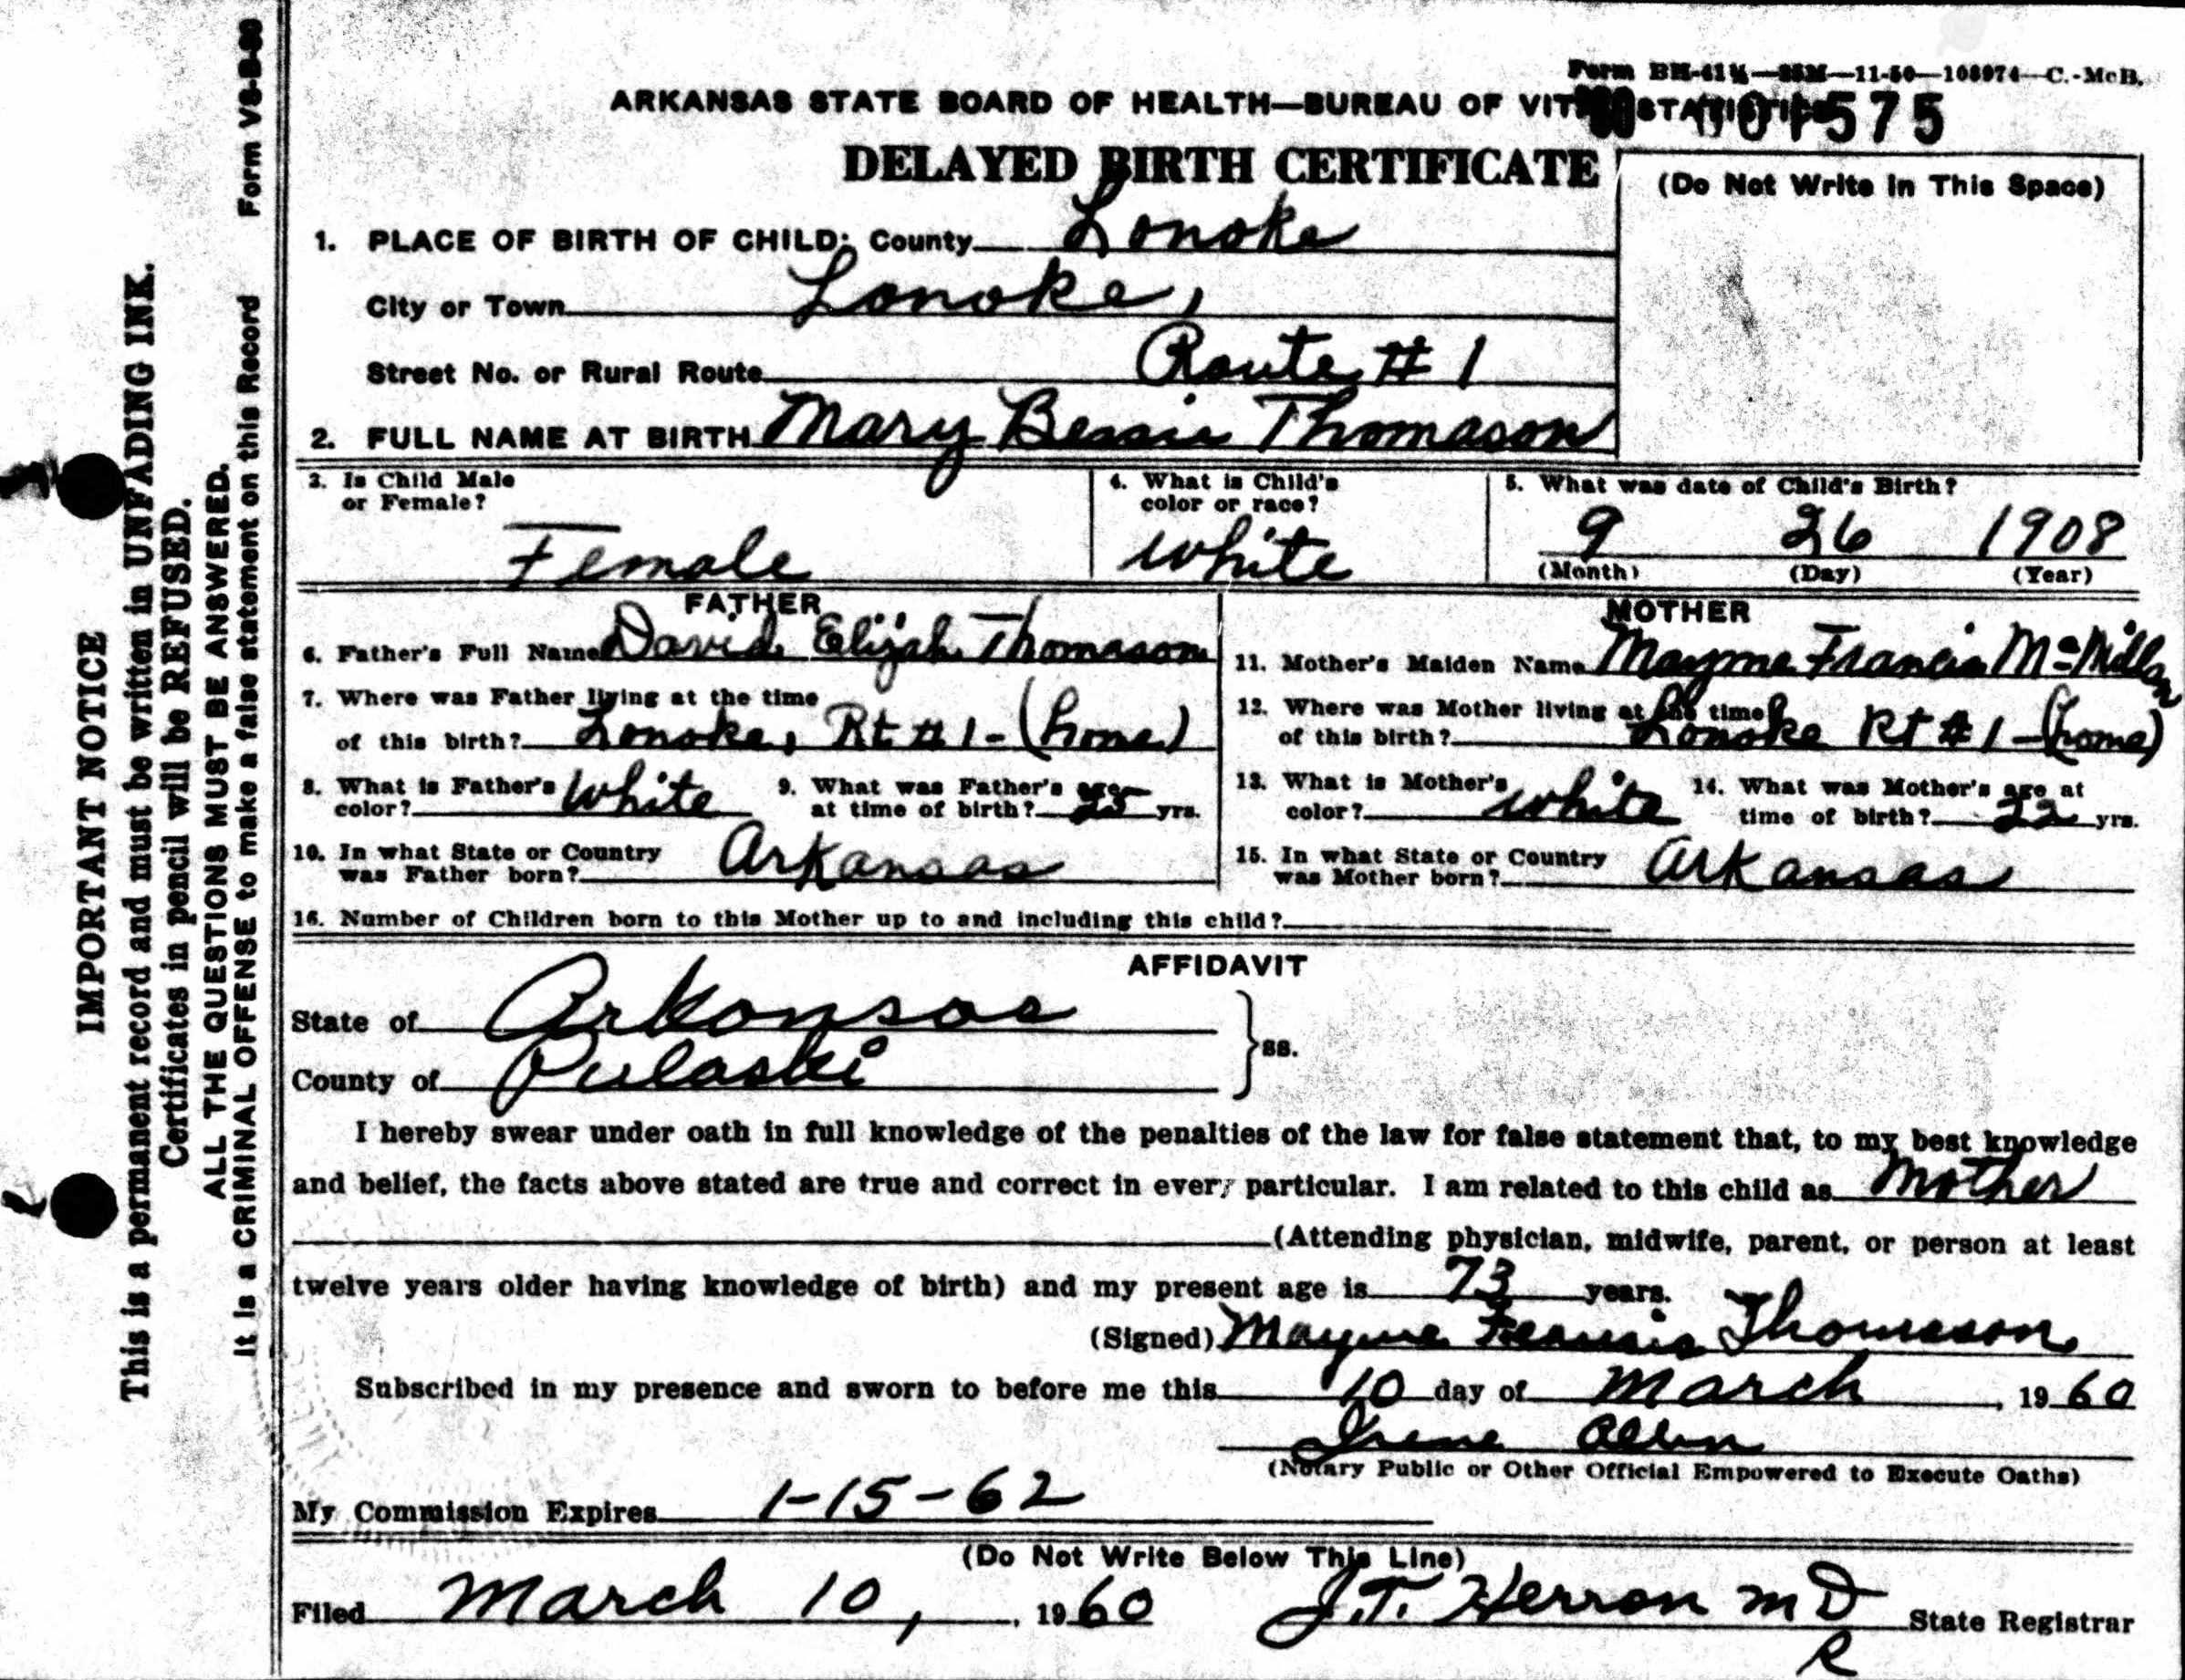 Form BH-41½—25M—11-50—108974—C.-McB.
ARKANSAS STATE BOARD OF HEALTH—BUREAU OF VITAL STATISTICS
575
DELAYED BIRTH CERTIFICATE
(Do Not Write in This Space)
1. PLACE OF BIRTH OF CHILD: County Lonoke
City or Town Lonoke,
Street No. or Rural Route Route # 1
2. FULL NAME AT BIRTH Mary Bessie Thomason
3. Is Child Male or Female? Female
4. What is Child's color or race? White
5. What was date of Child's Birth?
9 26 1908
(Month) (Day) (Year)
FATHER
6. Father's Full Name David Elijah Thomason
7. Where was Father living at the time
of this birth? Lonoke, Rt # 1 - (home)
8. What is Father's color? White
9. What was Father's age at time of birth? 25 yrs.
10. In what State or Country
was Father born? Arkansas
MOTHER
11. Mother's Maiden Name Mayme Francis McMillan
12. Where was Mother living at the time
of this birth? Lonoke Rt # 1 - (home)
13. What is Mother's color? White
14. What was Mother's age at time of birth? 22 yrs.
15. In what State or Country
was Mother born? Arkansas
16. Number of Children born to this Mother up to and including this child?
AFFIDAVIT
State of Arkansas
County of Pulaski
ss.
I hereby swear under oath in full knowledge of the penalties of the law for false statement that, to my best knowledge
and belief, the facts above stated are true and correct in every particular. I am related to this child as Mother
(Attending physician, midwife, parent, or person at least
twelve years older having knowledge of birth) and my present age is 73 years.
(Signed) Mayme Francis Thomason
Subscribed in my presence and sworn to before me this 10 day of March, 1960
Irene Allen
(Notary Public or Other Official Empowered to Execute Oaths)
My Commission Expires 1-15-62
(Do Not Write Below This Line)
Filed March 10, , 1960 J.T. Herron MD State Registrar
R
IMPORTANT NOTICE
This is a permanent record and must be written in UNFADING INK.
Certificates in pencil will be REFUSED.
ALL THE QUESTIONS MUST BE ANSWERED.
It is a CRIMINAL OFFENSE to make a false statement on this Record Form VS-B-30